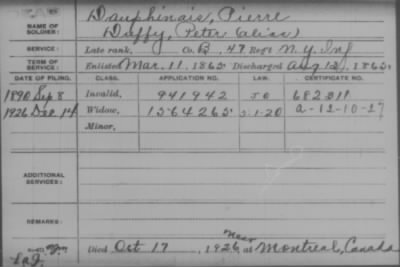 Dauphinais, Pierre
NAME OF SOLDIER: Duffy, Peter (alias)
SERVICE: Late rank, Co. B, 47 Reg't N.Y. Inf
TERM OF SERVICE: Enlisted Mar. 11, 1865 Discharged Aug 12, 1865
DATE OF FILING. CLASS. APPLICATION NO. LAW. CERTIFICATE NO.
1890 Sep 8 Invalid, 941942 682311
1926 Dec 14 Widow, 1564265 5-1-20 a-12-10-27
Minor,
ADDITIONAL SERVICES:
REMARKS:
Died Oct 17, 1926, near at Montreal, Canada